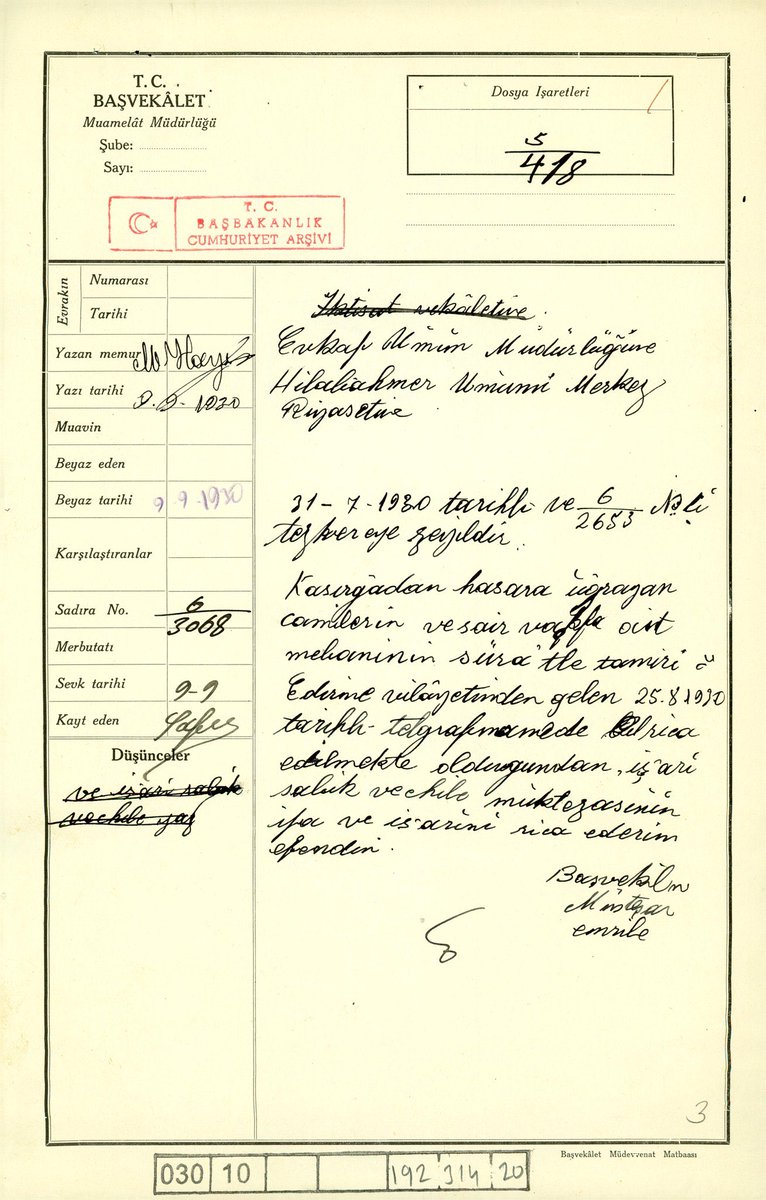 T. C.
BAŞVEKÂLET
Muamelât Müdürlüğü
Şube:
Sayı:
Dosya Işaretleri
5
418
T. C.
BAŞBAKANLIK
CUMHURİYET ARŞİVİ
Evrakın
Numarası
Tarihi
Yazan memur
Yazı tarihi 9.9.1930
Muavin
Beyaz eden
Beyaz tarihi 9.9.1930
Karşılaştıranlar
Sadıra No. 6
3068
Merbutatı
Sevk tarihi 9-9
Kayt eden
Düşünceler
ve iş'arı sabık
vechile yaz
İktisat vekâletine
Evkaf Umûm Müdürlüğüne
Hilaliahmer Umumî Merkez
Riyasetine
31-7-1930 tarihli ve 6/2653 No.li
tezkereye zeyildir.
Kasırğadan hasara uğrayan
camilerin vesair vakfa ait
mebaninin sür'atle tamiri
Edirne vilâyetinden gelen 25.8.1930
tarihli telgrafnamede rica
edilmekte olduğundan, iş'arı
sabık vechile muktezasinin
ifa ve iş'arini rica ederim
efendim.
Başvekil n
Müsteşar
emrile
3
030 10 192 314 20
Başvekâlet Müdevvenat Matbaası